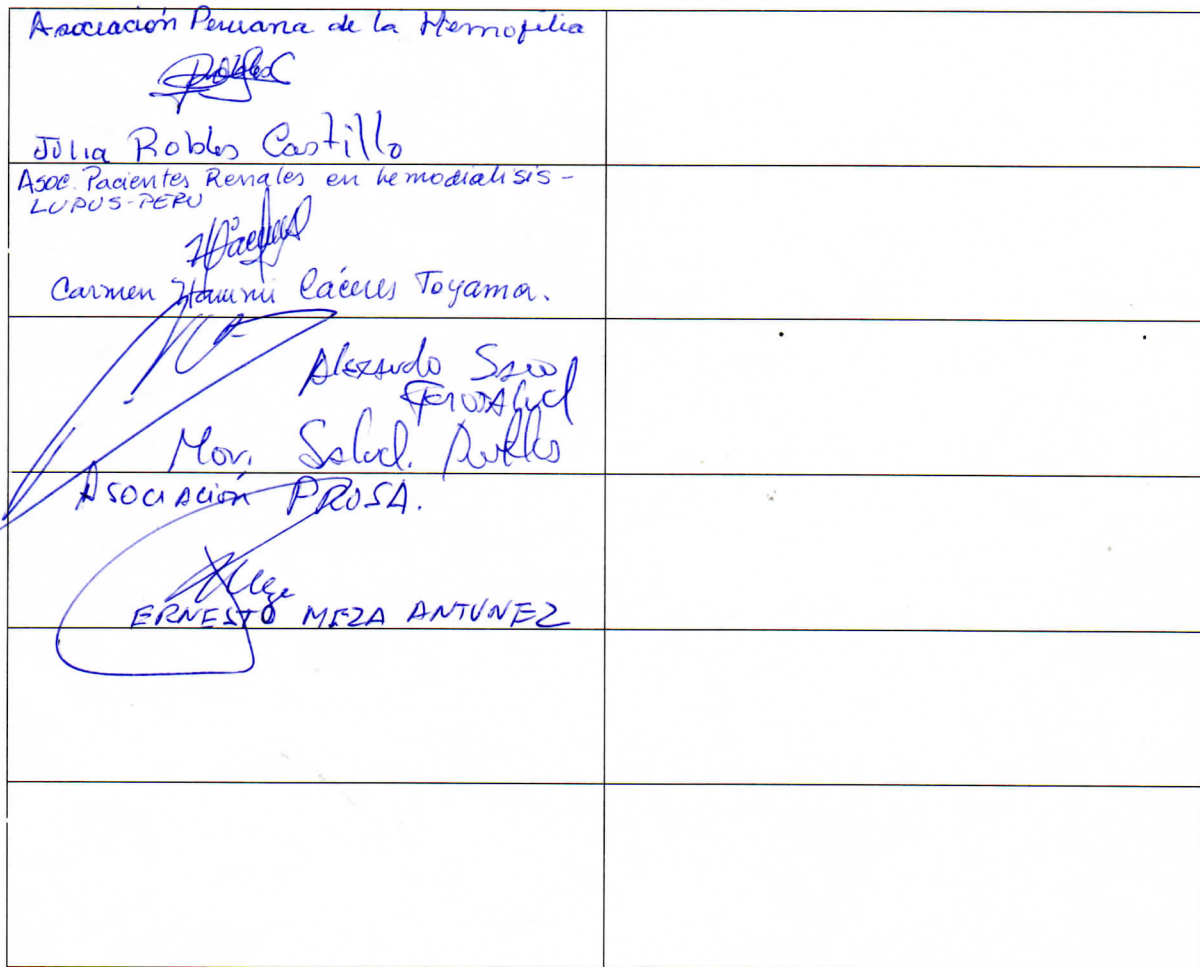 Asociación Peruana de la Hemofilia
RoblesC
Julia Robles Castillo
Asoc. Pacientes Renales en hemodialisis -
LUPUS-PERU
Carmen Cáceres Toyama.
FOROSAlud
Mov. Salud.
Asociación PROSA.
ERNESTO MEZA ANTUNEZ